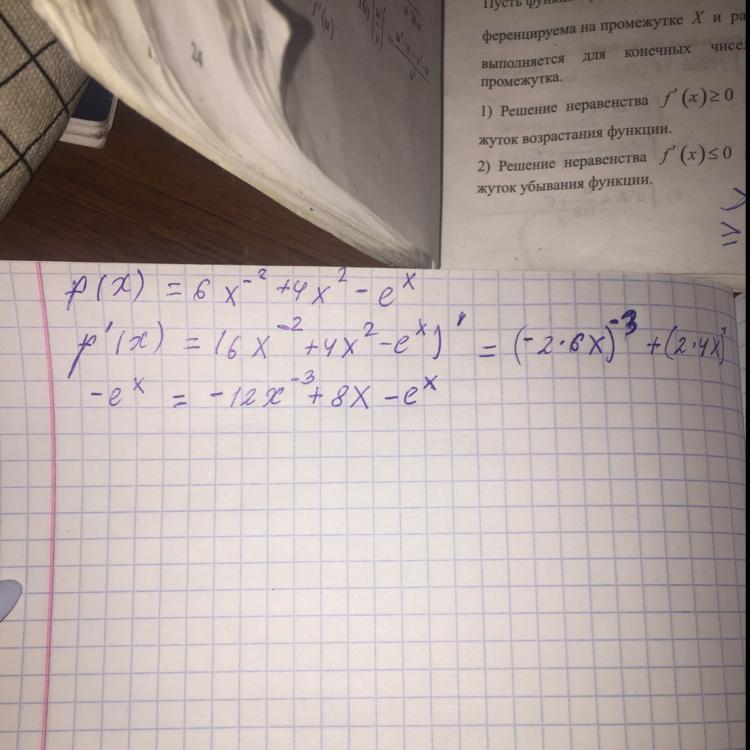 24
f'(u)
Пусть
ференцируема на промежутке X и
выполняется для конечных
промежутка.
1) Решение неравенства f'(x)≥0
жуток возрастания функции.
2) Решение неравенства f'(x)≤0
жуток убывания функции.
f(x) = 6x⁻² + 4x² - eˣ
f'(x) = (6x⁻² + 4x² - eˣ)' = (-2·6x)⁻³ + (2·4x)'
-eˣ = -12x⁻³ + 8x - eˣ